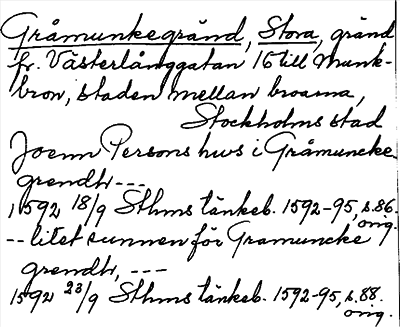 Gråmunkegränd, Stora, gränd
fr. Västerlånggatan 15 till Munk-
bron, staden mellan broarna,
Stockholms stad
Joenn Persons hws i Gråmuncke
grendh ---
1592 18/9 Sthms tänkeb. 1592-95, s. 86.
orig.
-- litet sunnen för Gramuncke
grendh, ---
1592 23/9 Sthms tänkeb. 1592-95, s. 88.
orig.